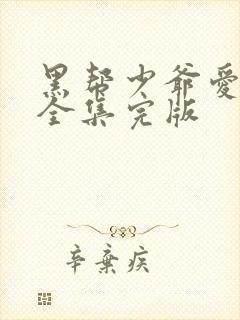 黑帮少爷爱
全集完版
辛棄疾